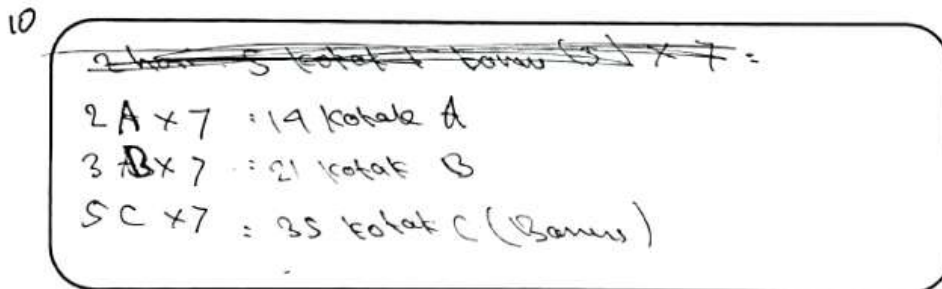 10
5 kotak × 7 =
2A × 7 : 14 kotak A
3 B × 7 : 21 kotak B
5C × 7 : 35 kotak C (Bonus)